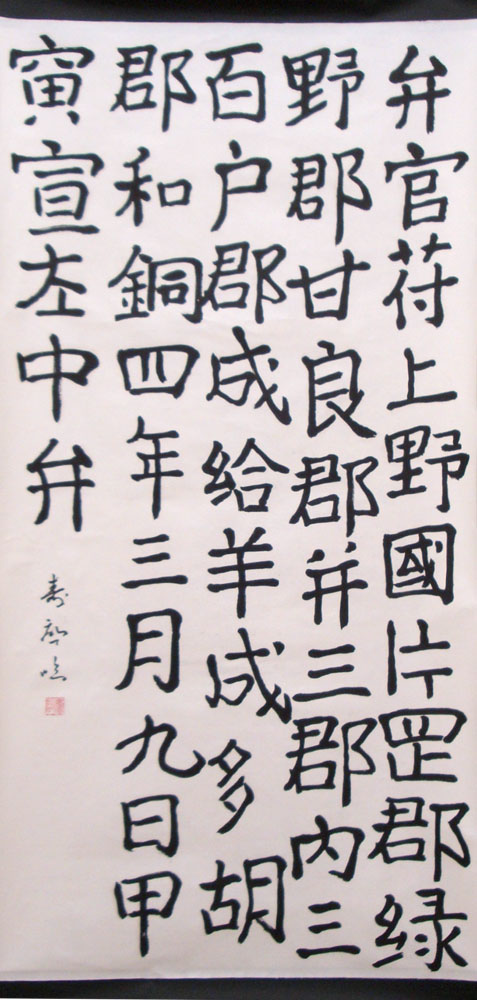 弁官苻上野國片罡郡緑
野郡甘良郡并三郡内三
百户郡成給羊成多胡
郡和銅四年三月九日甲
寅宣左中弁